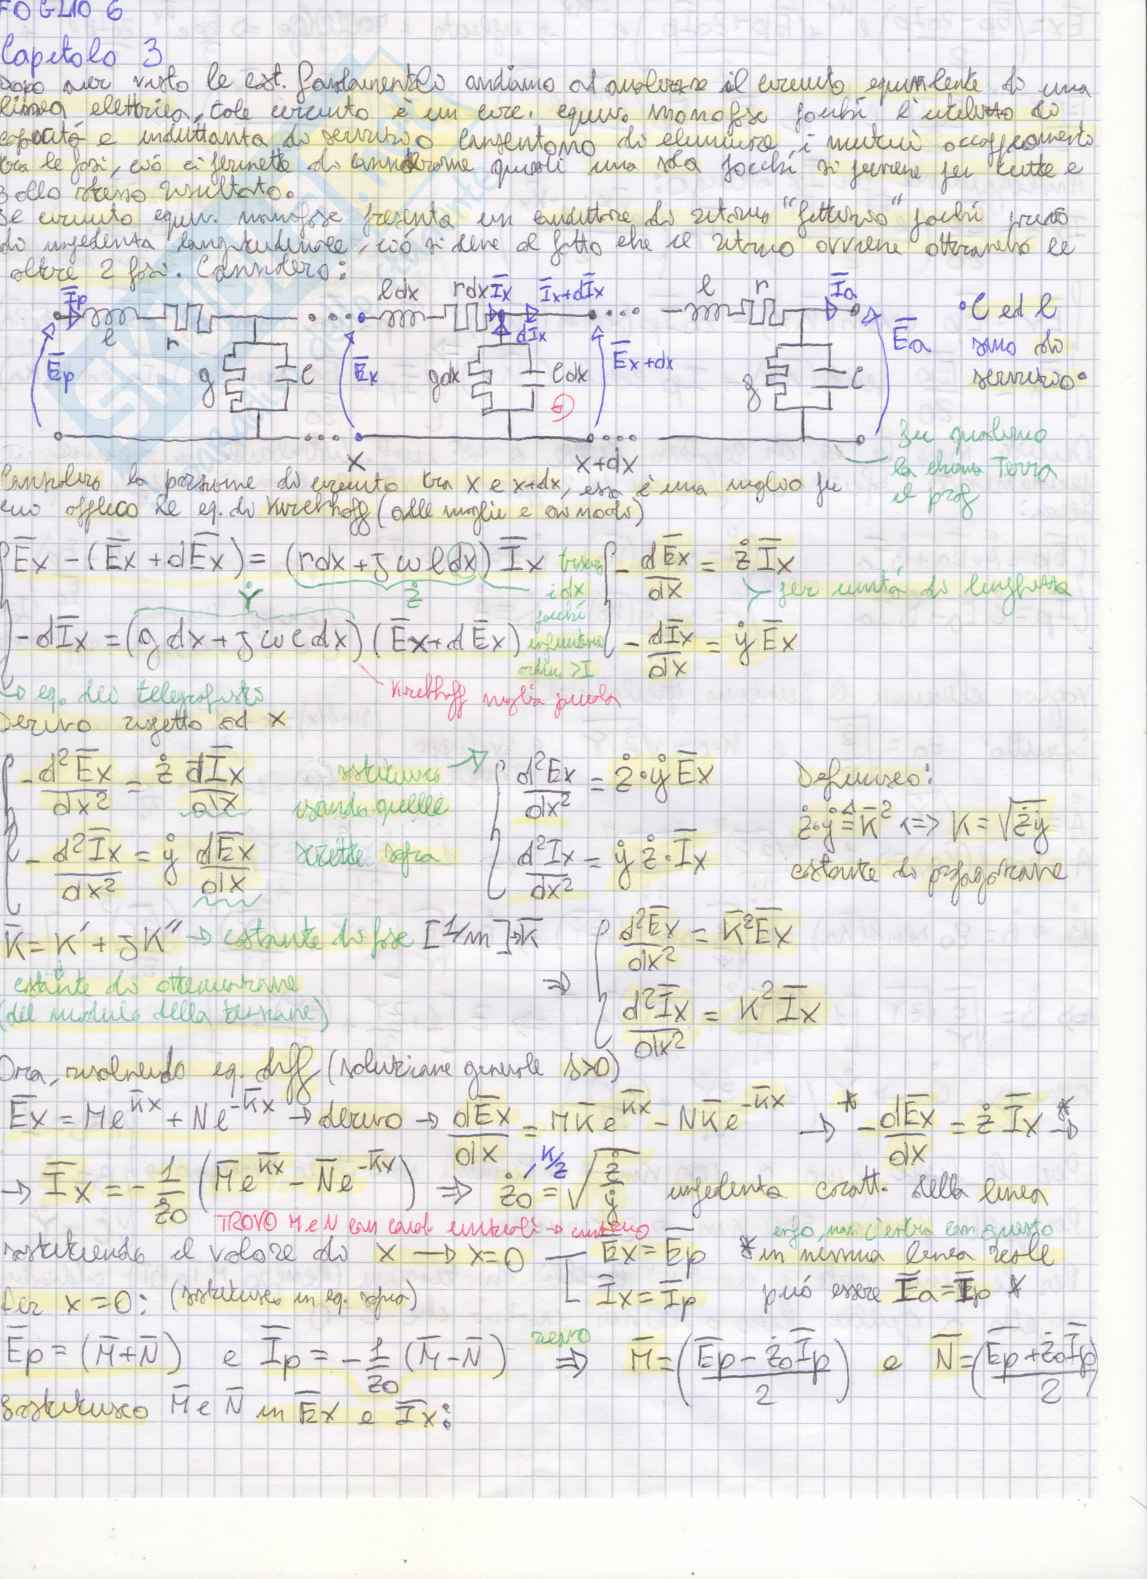 FOGLIO 6
Capitolo 3
Dopo aver visto le cost. fondamentali andiamo ad analizzare il circuito equivalente di una
linea elettrica, tale circuito è un circ. equiv. monofase poichè l'utilizzo di
capacità e induttanza di servizio consentono di eliminare i mutui accoppiamento
tra le fasi, ciò ci permette di considerarne quindi una sola poichè si perviene per tutte e
3 allo stesso risultato.
Il circuito equiv. monofase presenta un conduttore di ritorno "fittizio" poichè privo
di impedenza longitudinale, ciò si deve al fatto che il ritorno avviene attraverso le
altre 2 fasi. Considero:
Īp l r g c Ēp
ldx rdx Īx Īx+dĪx dĪx
Ēx gdx cdx Ēx+dx
l r Īa g c Ēa
°C ed l
sono di
servizio°
x x+dx
In qualsiasi
la chiama Terra
il prof
Considero la porzione di circuito tra x e x+dx, essa è una maglia per
cui applico le eq. di Kirchhoff (alle maglie e ai nodi)
Ēx - (Ēx + dĒx) = (rdx + jωldx) Īx
- dĒx/dx = ż Īx
> per unità di lunghezza
Ẏ ż
- dĪx = (gdx + jωcdx)(Ēx + dĒx)
- dĪx/dx = ẏ Ēx
↳ eq. dei telegrafisti
Kirchhoff maglia piccola
Derivo rispetto ad x
- d²Ēx/dx² = ż dĪx/dx
- d²Īx/dx² = ẏ dĒx/dx
sostituisco
usando quelle
scritte sopra
d²Ēx/dx² = ż·ẏ Ēx
d²Īx/dx² = ẏ ż·Īx
Definisco:
ż·ẏ ≜ K̄² <=> K = √żẏ
costante di propagazione
K̄ = K' + jK'' → costante di fase [1/m] → K̄
costante di attenuazione
(del modulo della tensione)
⇒ d²Ēx/dx² = K̄²Ēx
d²Īx/dx² = K²Īx
Ora, risolvendo eq. diff (soluzione generale Δ>0)
Ēx = Me^K̄x + Ne^-K̄x → derivo → dĒx/dx = MK̄e^K̄x - NK̄e^-K̄x → * - dĒx/dx = ż Īx * →
→ Īx = - 1/ż0 (M̄e^K̄x - N̄e^-K̄x) ⇒ ż0 = √ż/ẏ impedenza caratt. della linea
K/z
TROVO M e N con cond. iniziali
sostituendo il valore di x → x=0 Ēx = Ēp
Īx = Īp
* in nessuna linea reale
può essere Īa = Īp *
Per x=0: (sostituisco in eq. sopra)
Ēp = (M̄+N̄) e Īp = - 1/ż0 (M̄-N̄) ⇒ M̄ = (Ēp - ż0Īp / 2) e N̄ = (Ēp + ż0Īp / 2)
Sostituisco M̄ e N̄ in Ēx e Īx: